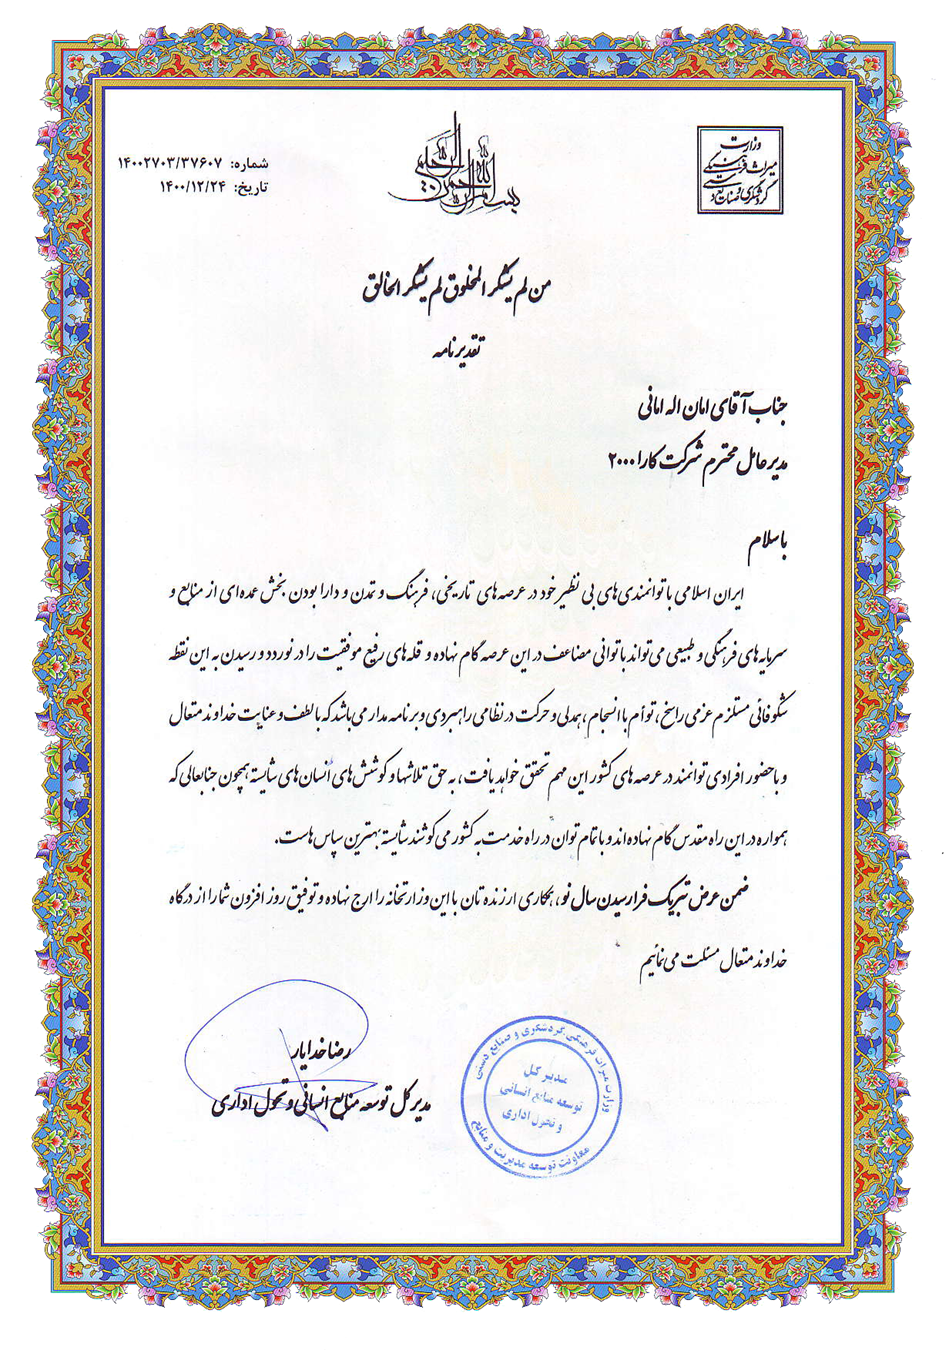 بسم الله الرحمن الرحیم
وزارت
میراث فرهنگی
گردشگری و صنایع دستی
شماره: ۱۴۰۰۲۷۰۳/۳۷۶۰۷
تاریخ: ۱۴۰۰/۱۲/۲۴
من لم یشکر المخلوق لم یشکر الخالق
تقدیرنامه
جناب آقای امان اله امانی
مدیرعامل محترم شرکت کارا ۲۰۰۰
باسلام
ایران اسلامی با توانمندی‌های بی نظیر خود در عرصه‌های تاریخی، فرهنگ و تمدن و دارا بودن بخش عمده‌ای از منابع و
سرمایه‌های فرهنگی و طبیعی می‌تواند با توانی مضاعف در این عرصه گام نهاده و قله‌های رفیع موفقیت را در نوردد و رسیدن به این نقطه
شکوفائی مستلزم عزمی راسخ، توأم با انسجام، همدلی و حرکت در نظامی راهبردی و برنامه مدار می‌باشد که با لطف و عنایت خداوند متعال
و با حضور افرادی توانمند در عرصه‌های کشور این مهم تحقق خواهد یافت، به حق تلاشها و کوشش‌های انسان‌های شایسته همچون جنابعالی که
همواره در این راه مقدس گام نهاده‌اند و با تمام توان در راه خدمت به کشور می‌کوشند شایسته بهترین سپاس‌هاست.
ضمن عرض تبریک فرا رسیدن سال نو، همکاری ارزنده تان با این وزارتخانه را ارج نهاده و توفیق روز افزون شما را از درگاه
خداوند متعال مسئلت می‌نمائیم
رضا خدایار
مدیرکل توسعه منابع انسانی و تحول اداری
وزارت میراث فرهنگی، گردشگری و صنایع دستی
مدیر کل
توسعه منابع انسانی
و تحول اداری
معاونت توسعه مدیریت و منابع